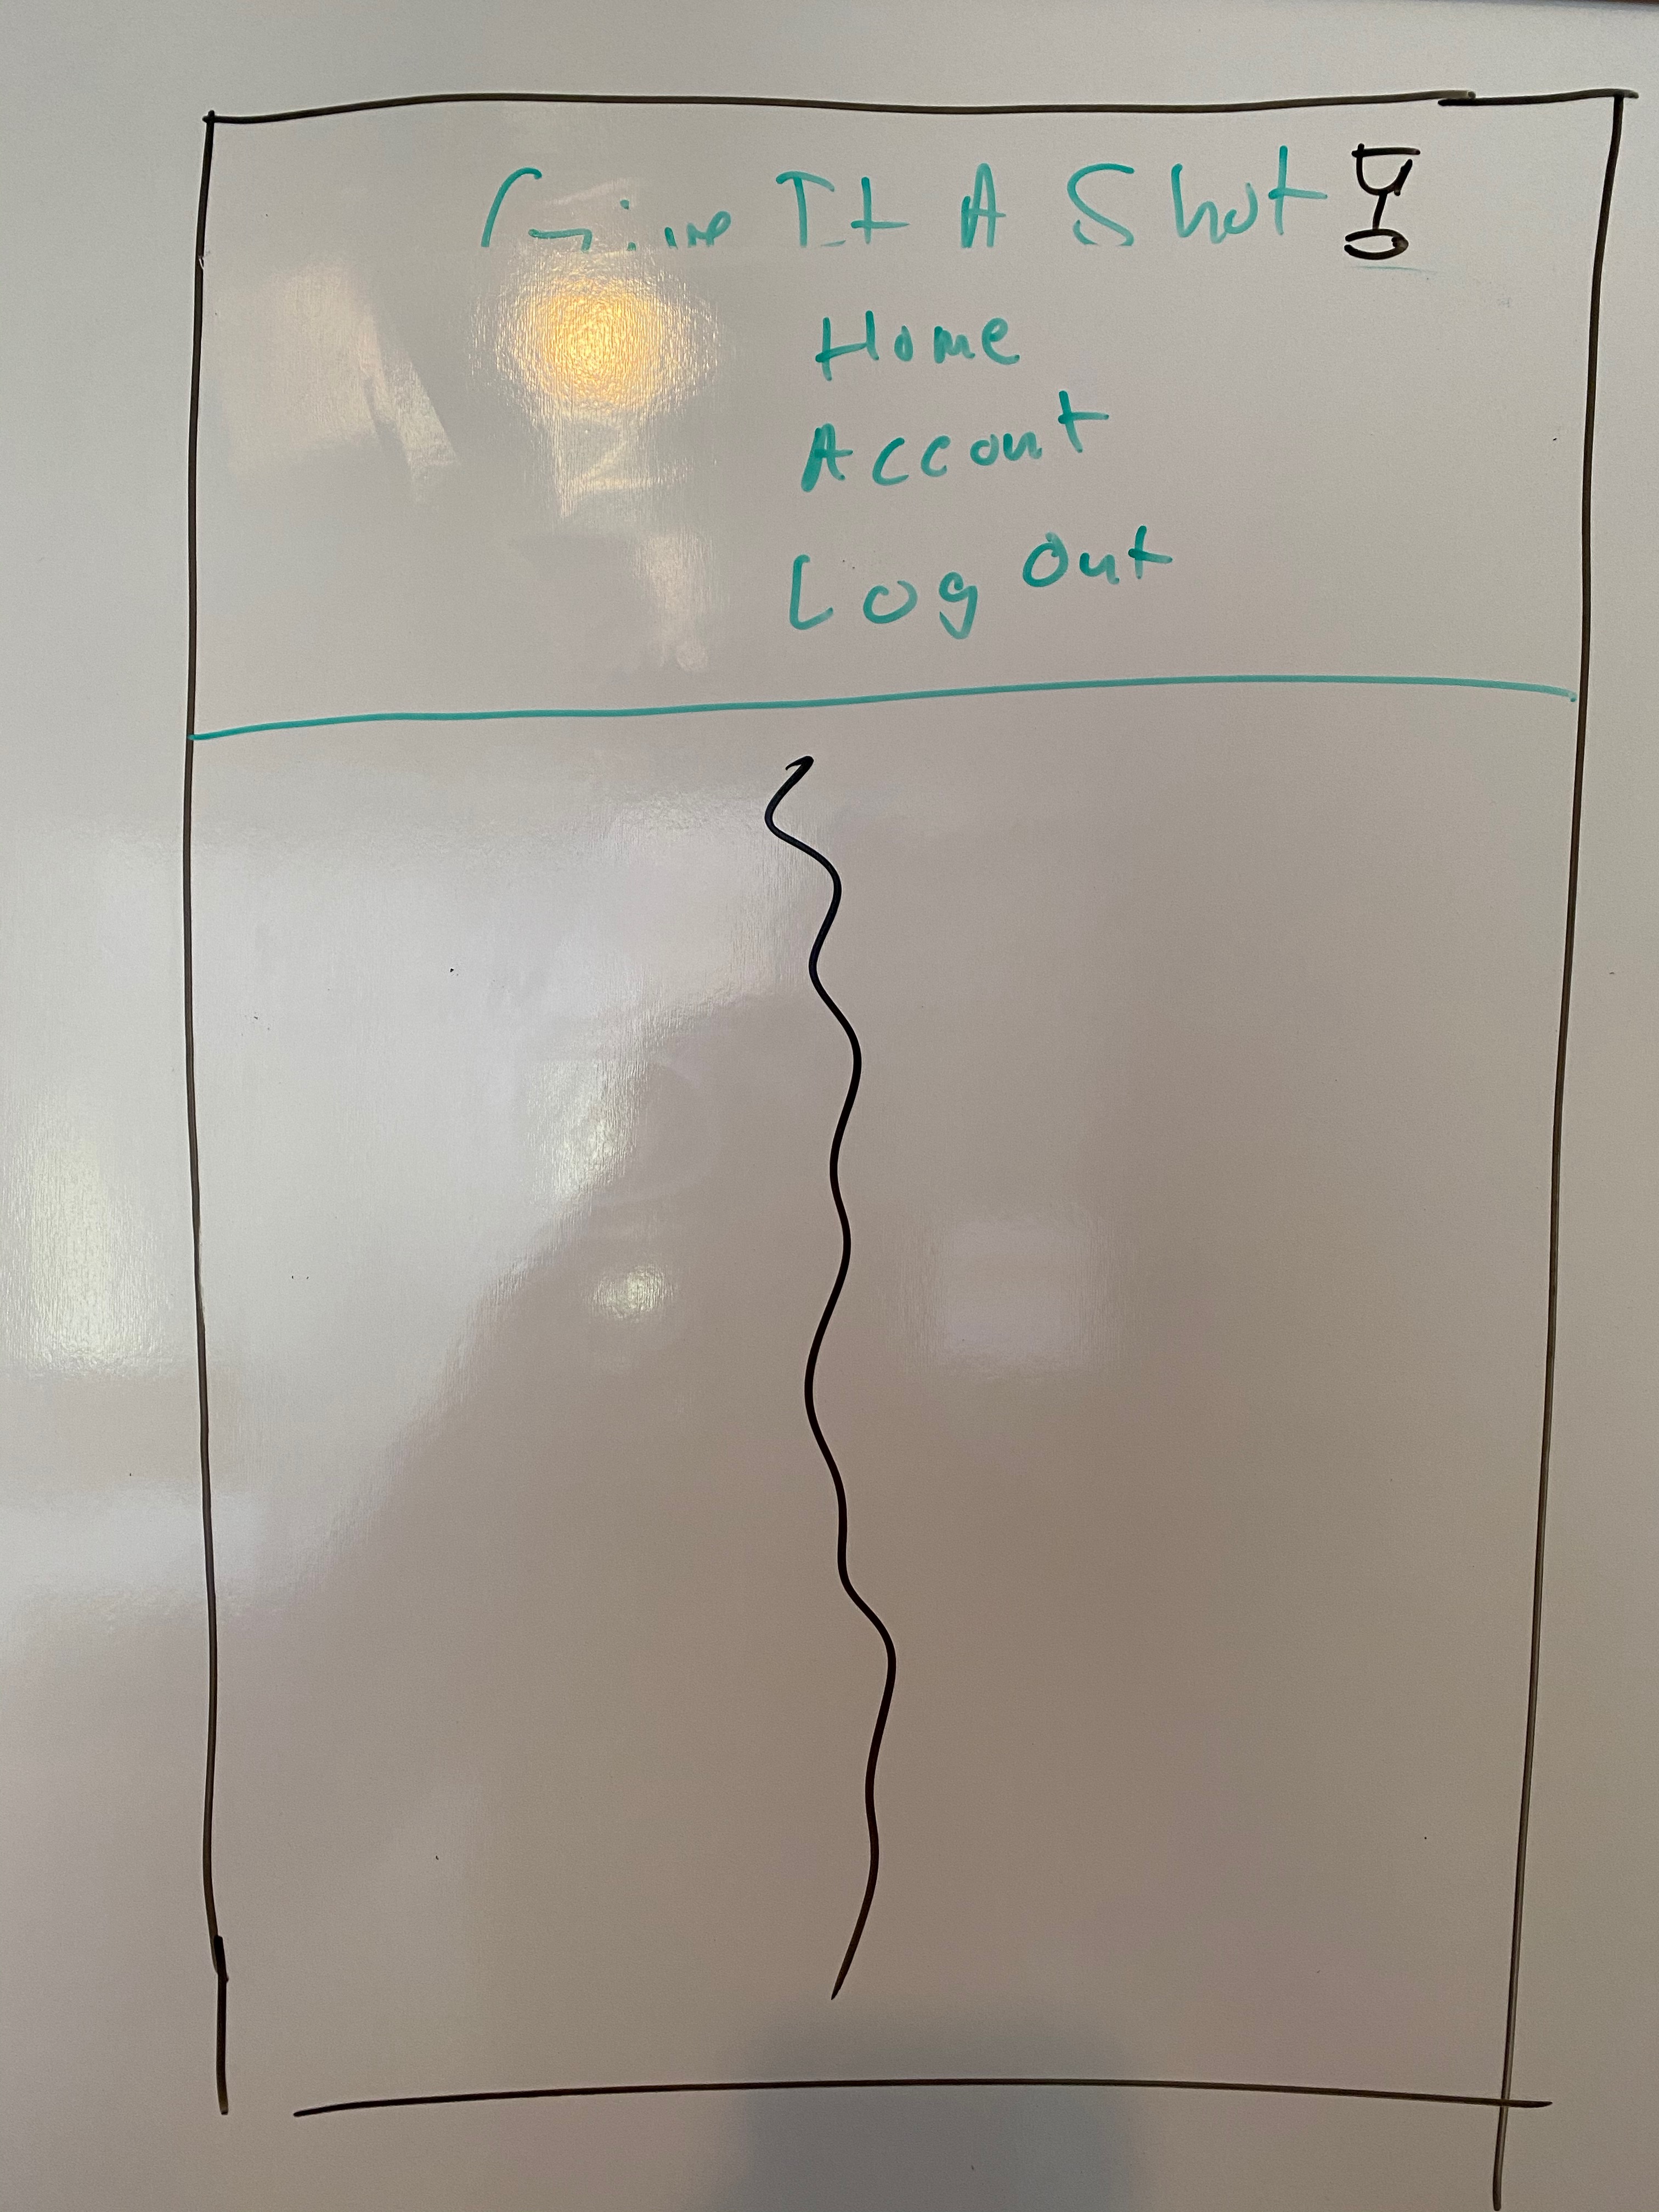 Give It A Shot
Home
Account
Log Out